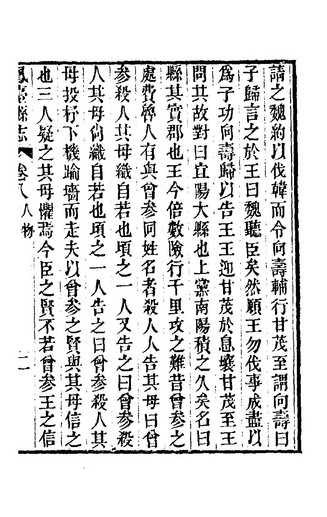 請之魏約以伐韓而令向壽輔行甘茂至謂向壽曰
子歸言之於王曰魏聽臣矣然願王勿伐事成盡以
爲子功向壽歸以告王王迎甘茂於息壤甘茂至王
問其故對曰宜陽大縣也上黨南陽積之久矣名曰
縣其實郡也王今倍數險行千里攻之難昔曾參之
處費魯人有與曾參同姓名者殺人人告其母曰曾
參殺人其母織自若也頃之一人又告之曰曾參殺
人其母尙織自若也頃之一人告之曰曾參殺人其
母投杼下機踰墻而走夫以曾參之賢與其母信之
也三人疑之其母懼焉今臣之賢不若曾參王之信
鳳臺縣志 卷八 人物 二